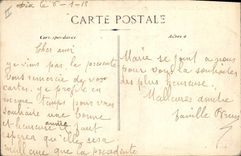 le 6-1-18
CARTE POSTALE
Correspondance
Adresse
Cher ami
je viens par la présente
vous remercie de vos
cartes. je profite en
même temps pour vous
souhaiter une bonne
et heureuse année il faut
qu'elle sera
meilleure que la précédente
Marie se joint a nous
pour vous la souhaiter
des plus heureuse.
Meilleures amitiés
famille